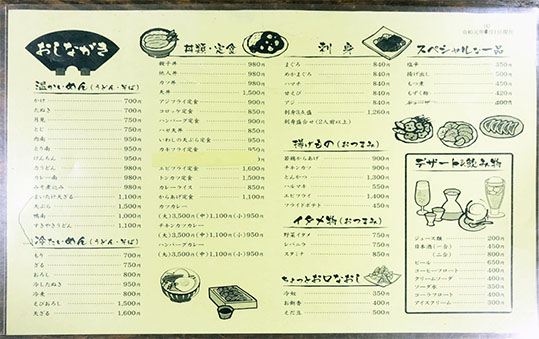 おしながき
温かいめん (うどん・そば)
かけ 700円
たぬき 750円
月見 750円
とじ 750円
肉南 950円
とり南 950円
けんちん 950円
カレー南 950円
みそ煮込み 980円
まいたけ天ざる 1,100円
天ぷら 1,500円
鴨南 1,100円
すきやきうどん 1,100円
冷たいめん (うどん・そば)
もり 700円
ざる 750円
おろし 800円
冷したぬき 950円
冷麦 800円
えびおろし 1,500円
天ざる 1,600円
丼類・定食
親子丼 980円
他人丼 980円
カツ丼 980円
天丼 1,500円
アジフライ定食 900円
コロッケ定食 850円
ハンバーグ定食 900円
ハゼ天丼 850円
いわしの天ぷら定食 900円
カキフライ定食
エビフライ定食 1,600円
トンカツ定食 1,000円
カレーライス 850円
からあげ定食 1,100円
カツカレー
(大)3,500円(中)1,100円(小)950円
チキンカツカレー
(大)3,500円(中)1,100円(小)950円
ハンバーグカレー
(大)3,500円(中)1,100円(小)950円
刺身
まぐろ 840円
めかまぐろ 840円
ハマチ 840円
甘えび 840円
アジ 840円
刺身3点盛 1,260円
刺身盛合せ(2人前以上)
揚げもの (おつまみ)
若鶏からあげ 900円
チキンカツ 900円
とんかつ 1,300円
ハルマキ 550円
エビフライ 1,400円
フライドポテト 450円
イタメ物 (おつまみ)
野菜イタメ 750円
レバニラ 750円
スタミナ 850円
ちょっとお口なおし
冷奴 350円
お新香 400円
えだ豆 500円
スペシャルな一品
塩辛 350円
揚げ出し 500円
もつ煮 450円
もずく 420円
デザート・お飲み物
ジュース類 200円
日本酒(一合) 450円
(二合) 800円
ビール 650円
コーヒーフロート 400円
クリームソーダ 400円
ソーダ水 350円
コーラフロート 400円
アイスクリーム 300円